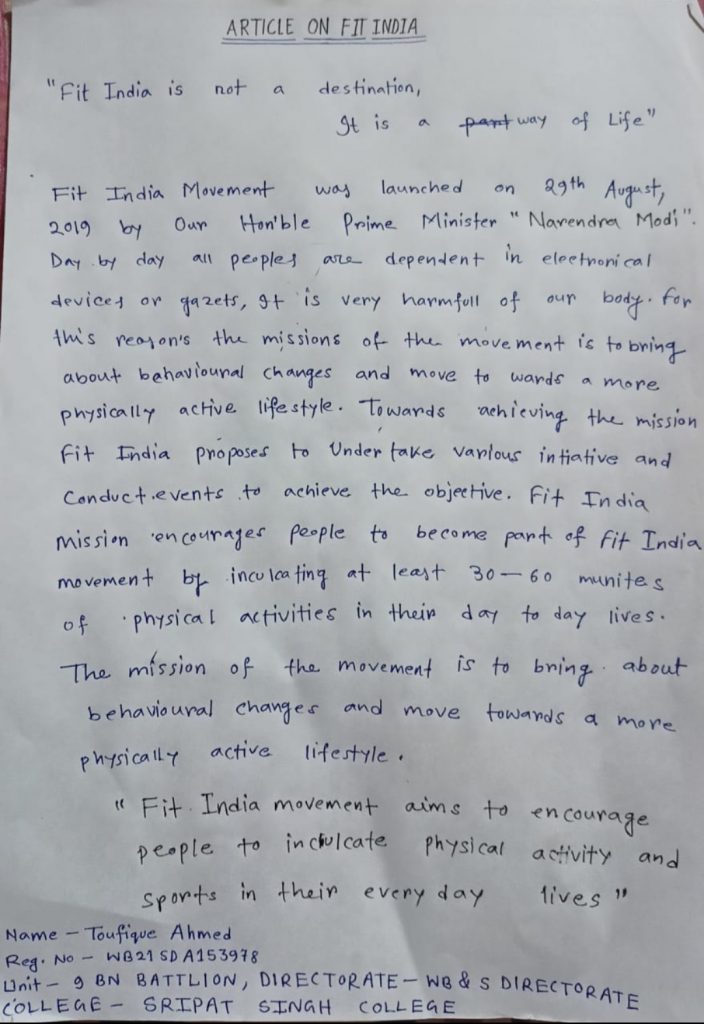 ARTICLE ON FIT INDIA
"Fit India is not a destination,
It is a part way of Life"
Fit India Movement was launched on 29th August,
2019 by Our Hon'ble Prime Minister "Narendra Modi".
Day by day all peoples are dependent in electronical
devices or gazets, It is very harmfull of our body. For
this reason's the missions of the movement is to bring
about behavioural changes and move to wards a more
physically active lifestyle. Towards achieving the mission
Fit India proposes to Undertake various intiative and
Conduct events to achieve the objective. Fit India
mission encourages people to become part of Fit India
movement by inculcating at least 30-60 munites
of physical activities in their day to day lives.
The mission of the movement is to bring about
behavioural changes and move towards a more
physically active lifestyle.
"Fit India movement aims to encourage
people to inculcate physical activity and
sports in their every day lives"
Name - Toufique Ahmed
Reg. No - WB21SDA153978
Unit - 9 BN BATTLION, DIRECTORATE - WB & S DIRECTORATE
COLLEGE - SRIPAT SINGH COLLEGE